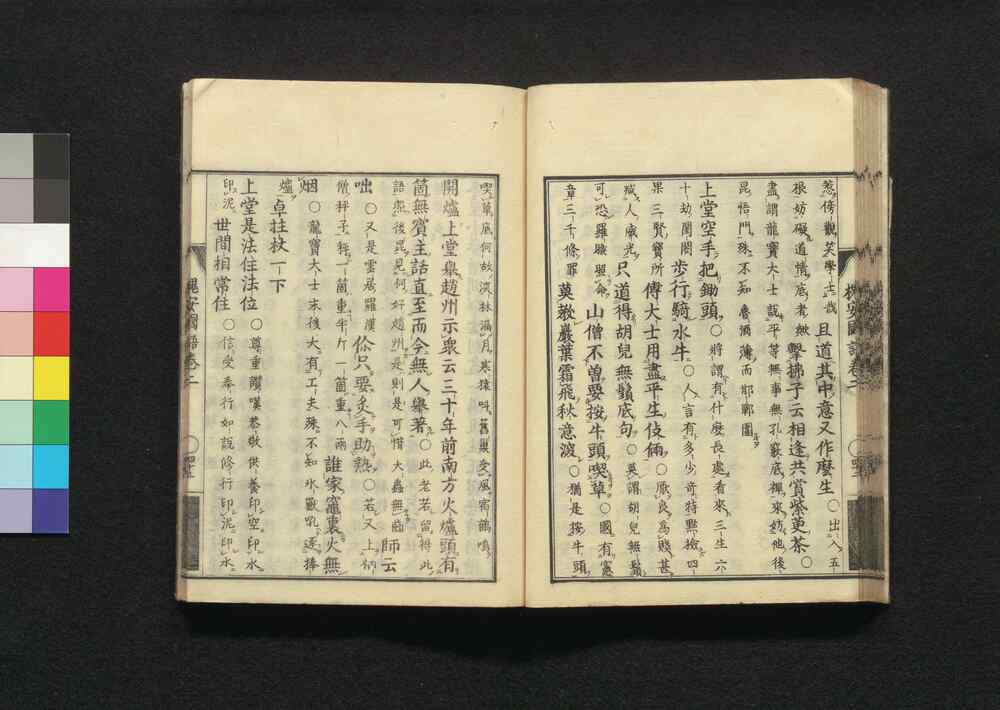 且道其中意又作麼生○出入五
根妨礙道情底者漱擊拂子云相逢共賞紫茰茶○
盡謂龍寶大士哉平等無事無孔竅底禪來妨他後
昆悟門殊不知魯酒薄而邯鄲圍
上堂空手把鋤頭○將謂有什麼長處看來三生六
十劫闍闍步行騎水牛○人人言有多少奇特點撿四
果三賢寶所傳大士用盡平生伎倆○厭良爲賤甚
減人威光只道得胡兒無鬚底句○莫謂胡兒無鬚
可恐羅睺山僧不曾要按牛頭喫草○國有憲
章三千條罪莫教巖葉霜飛秋意深○猶是按牛頭
喫草底何故淡林滿月寒猿叫舊巢受風宿鶴鳴
開爐上堂舉趙州示衆云三十年前南方火爐頭有
箇無賓主話直至而今無人舉著○此老若留得此
語悉後昆昆何好趙州是則是可惜大蟲無齒師云
咄○又是雲居羅漢你只要炙手助熱○若又上柄
僧秤子秤一箇重半斤一箇重八兩誰家竈裏火無
烟○龍寶大士末後大有工夫殊不知氷歇吼逐捧
爐卓拄杖一下
上堂是法住法位○尊重讚嘆恭敬供養印空印水
印泥世間相常住○信受奉行如說修行印泥印水
槐安國語卷二